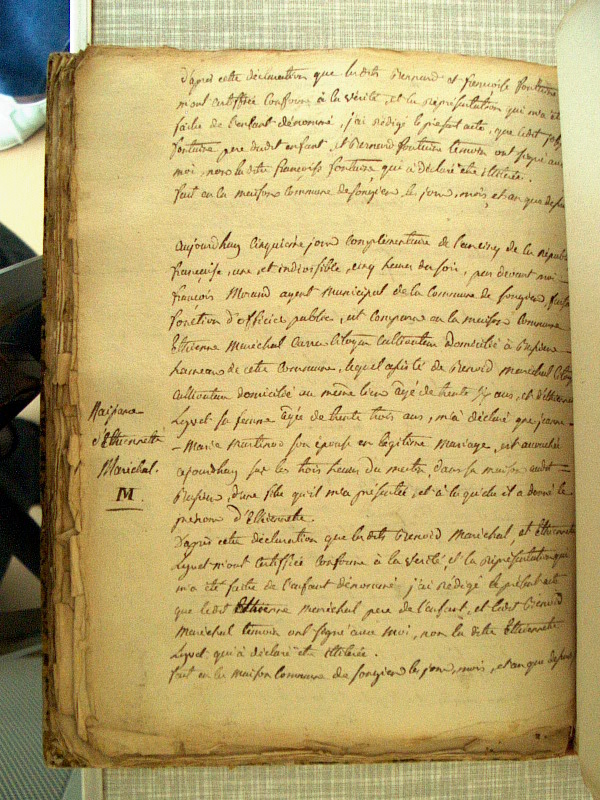 D'après cette déclaration que les dits Bernard et françoise fontaine
m'ont certifiée conforme à la vérité, et la représentation qui m'a été
faite de l'enfant dénommé, j'ai rédigé le présent acte, que ledit
fontaine pere dudit enfant, et Bernard fontaine temoin ont signé avec
moi, non la dite françoise fontaine qui a déclaré être illiterée.
fait en la maison commune de songieu les jour, mois, et an que dessus
aujourdhuy cinquieme jour complémentaire de l'an cinq de la républ
françaîse, une et indivisible, cinq heures du soir, par devant moi
françois Morand agent municipal de la commune de songieu faisant
fonction d'officier public, est comparu en la maison commune
Ethienne Maréchal Citoyen cultivateur domicilié à
hameau de cette Commune, lequel assisté de Benoid maréchal
cultivateur domicilié au même lieu âgé de trente six ans, et d'éthiennette
Lyvet sa femme âgée de trente trois ans, m'a déclaré que jeanne
- Marie Martinod son épouse en légitime mariage, est accouchée
aujourdhuy sur les trois heures du matin, dans sa maison audit
d'une fille qu'il m'a présentée, et à laquelle il a donné le
prenom d'Ethiennette.
Naissance
d'Ethiennette
Maréchal.
M
D'après cette déclaration que les dits Benoid Maréchal, et Ethiennette
Lyvet m'ont certiffiée conforme à la verité, et la représentation qui
m'a été faite de l'enfant dénommé j'ai rédigé le présent acte
que ledit Ethienne Maréchal pere de l'enfant, et ledit Benoid
Maréchal temoin ont signé avec moi, non la dite Ethiennette
Lyvet qui a déclaré être illiterée.
fait en la maison commune de songieu les jour, mois, et an que dessus